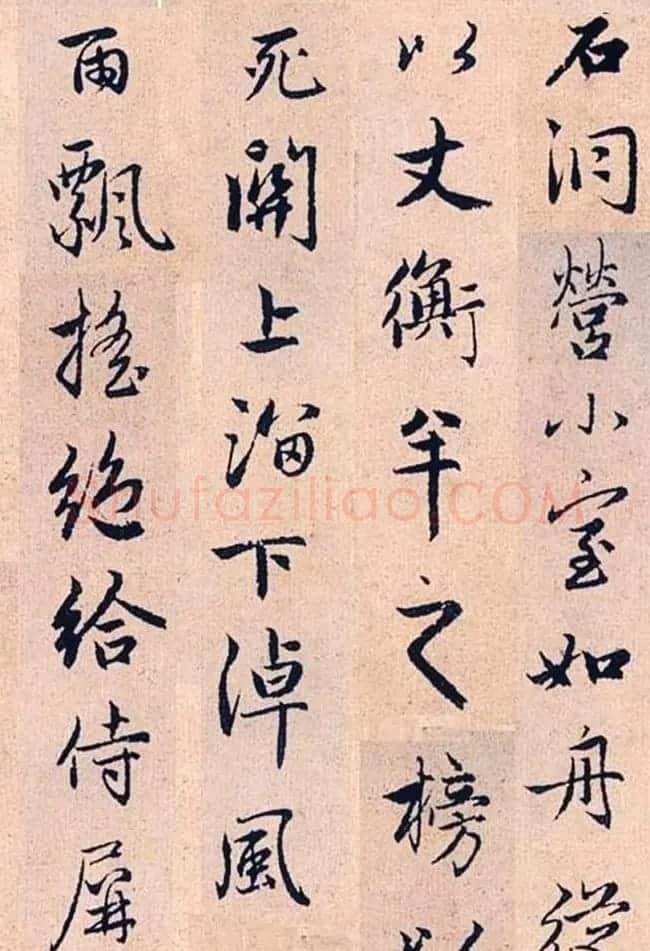 石洞營小室如舟從
以丈衡半之榜以
死關上溜下淖風
雨飄搖絕給侍屏
Shufaziliao.COM